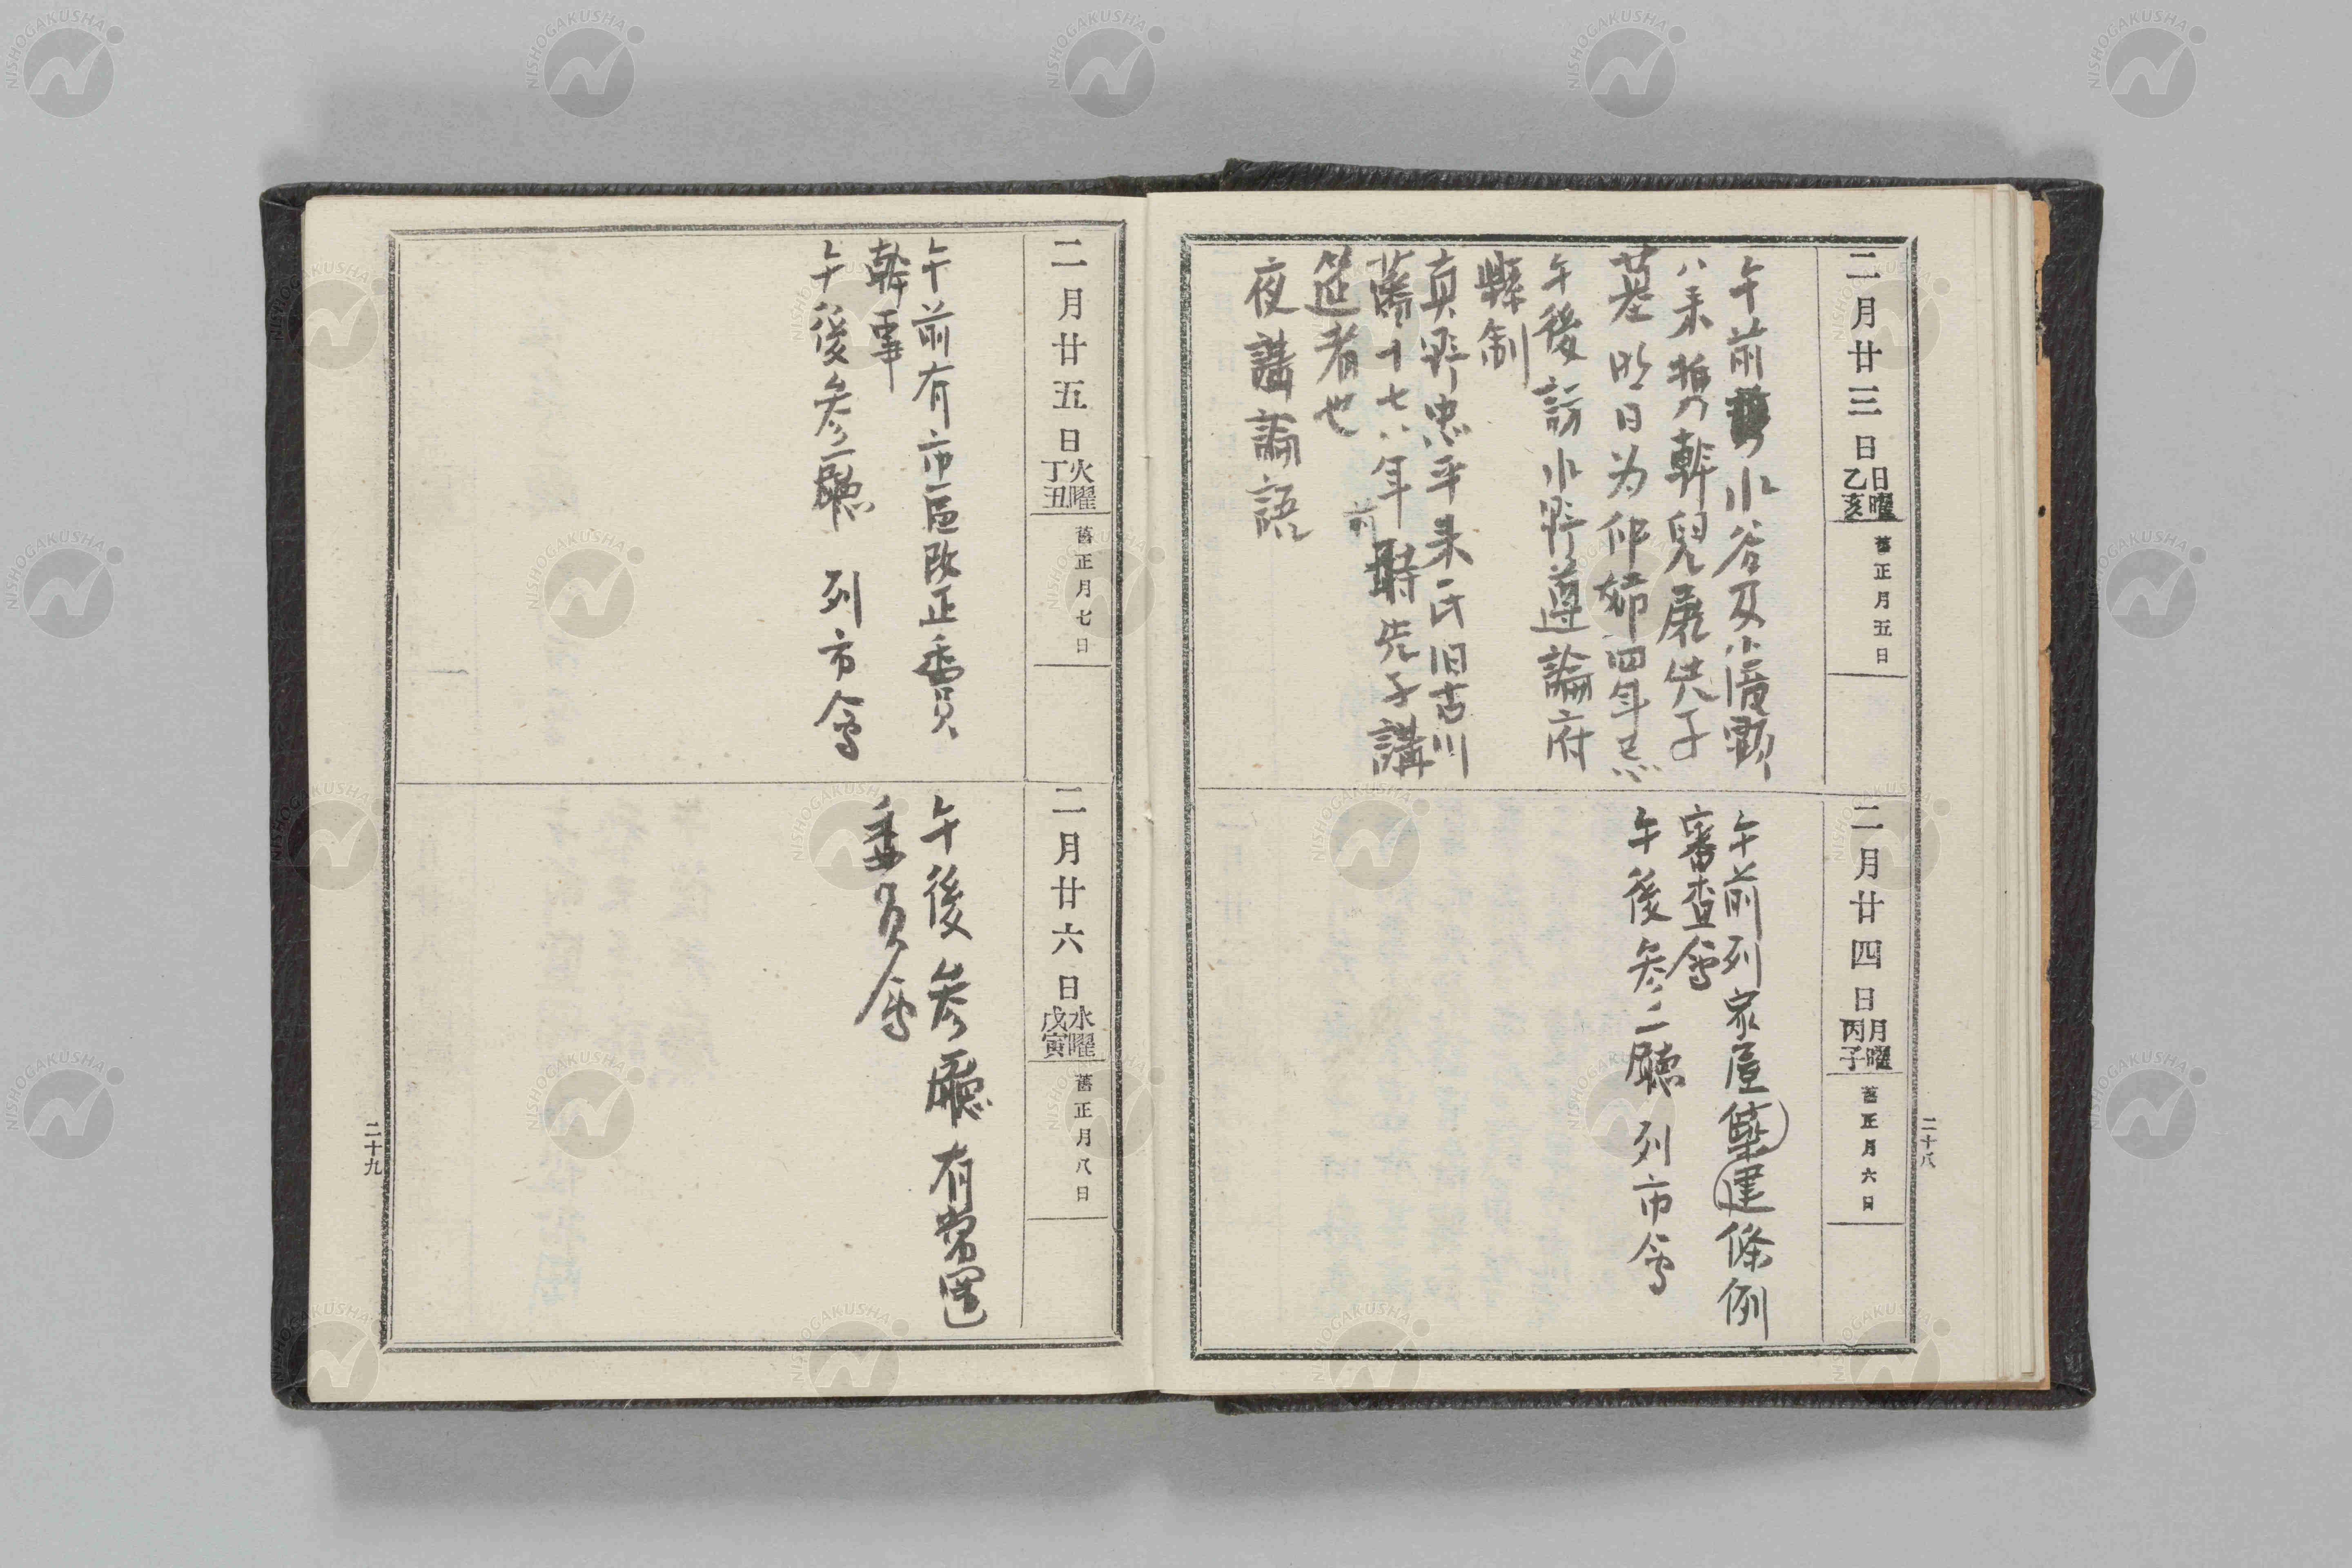 二月廿三日
日曜
乙亥
舊正月五日
午前 小谷及小濱顕
八来 挈幹兒展先子
墓 明日为仲姉四年忌
午後訪小野尊論府
縣制
真野忠平来氏旧古川
藩十七八年前時先子講
筵者也
夜講論語
二月廿四日
月曜
丙子
舊正月六日
午前列家屋築建條例
審査會
午後参二廳 列市會
二十八
二月廿五日
火曜
丁丑
舊正月七日
午前有市區改正委員
幹事
午後参二廳 列市會
二月廿六日
水曜
戊寅
舊正月八日
午後参廳 有常置
委員會
二十九
NISHOGAKUSHA